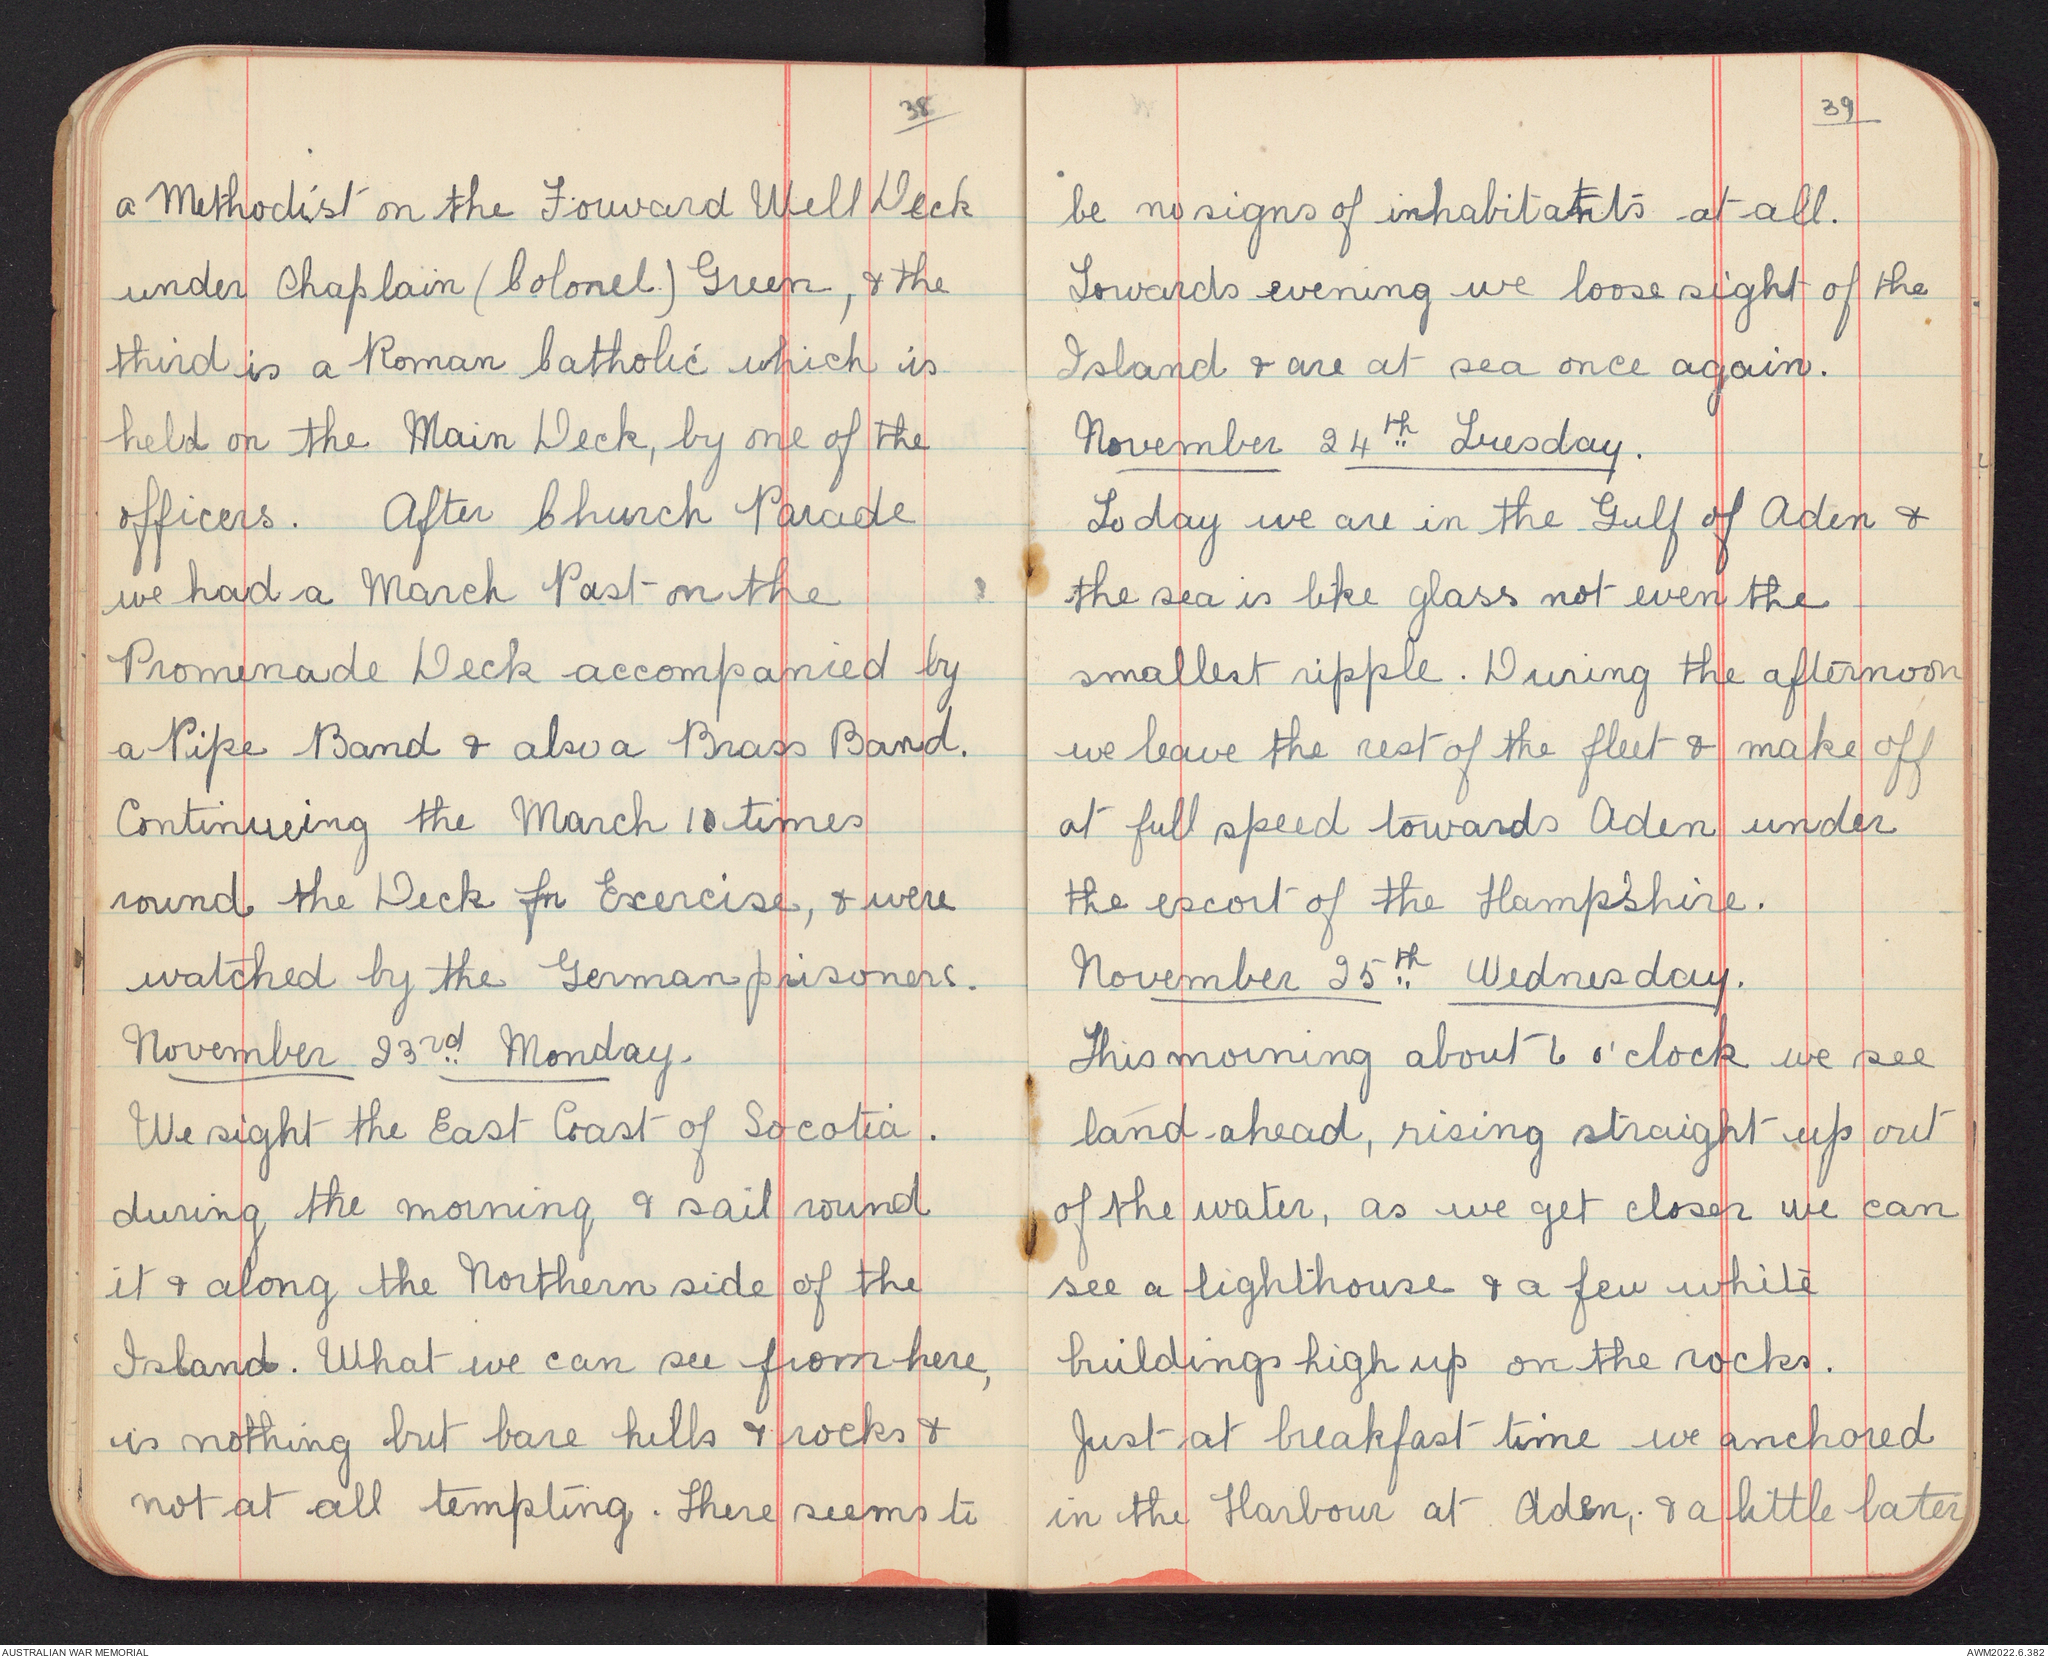 38
a Methodist on the Forward Well Deck
under Chaplain (Colonel) Green, & the
third is a Roman Catholic which is
held on the Main Deck, by one of the
officers. After Church Parade
we had a March Past on the
Promenade Deck accompanied by
a Pipe Band & also a Brass Band.
Continueing the March 10 times
round the Deck for Exercise, & were
watched by the German prisoners.
November 23rd Monday.
We sight the East Coast of Socotia.
during the morning & sail round
it & along the Northern side of the
Island. What we can see from here,
is nothing but bare hills & rocks &
not at all tempting. There seems to
39
be no signs of inhabitants at all.
Towards evening we loose sight of the
Island & are at sea once again.
November 24th Tuesday.
Today we are in the Gulf of Aden &
the sea is like glass not even the
smallest ripple. During the afternoon
we leave the rest of the fleet & make off
at full speed towards Aden under
the escort of the Hampshire.
November 25th Wednesday.
This morning about 6 o'clock we see
land ahead, rising straight up out
of the water, as we get closer we can
see a lighthouse & a few white
buildings high up on the rocks.
Just at breakfast time we anchored
in the Harbour at Aden, & a little later
AUSTRALIAN WAR MEMORIAL
AWM2022.6.382